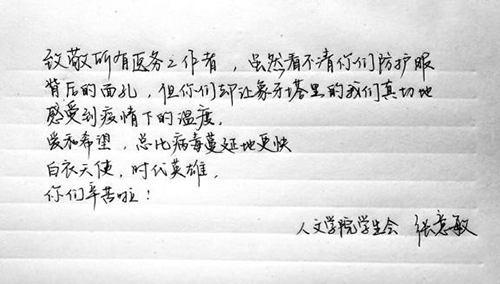 致敬所有医务工作者，虽然看不清你们防护服
背后的面孔，但你们却让象牙塔里的我们真切地
感受到疫情下的温度。
爱和希望，总比病毒蔓延地更快
白衣天使，时代英雄，
你们辛苦啦！
人文学院学生会 张意敏